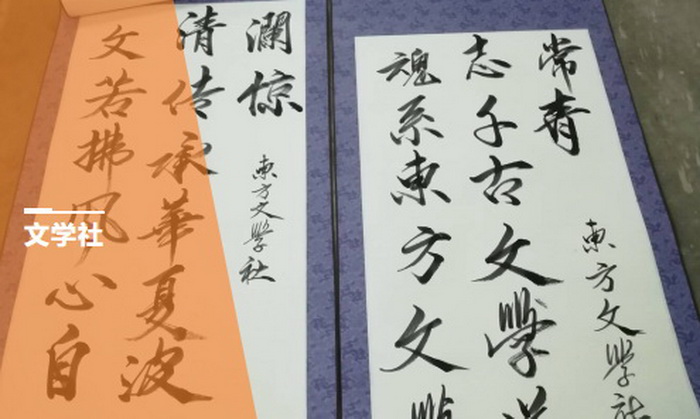 文学社
文若拂风心自
清传承華夏波
瀾惊
東方文學社
魂系東方文
志千古文學
常青
東方文學社